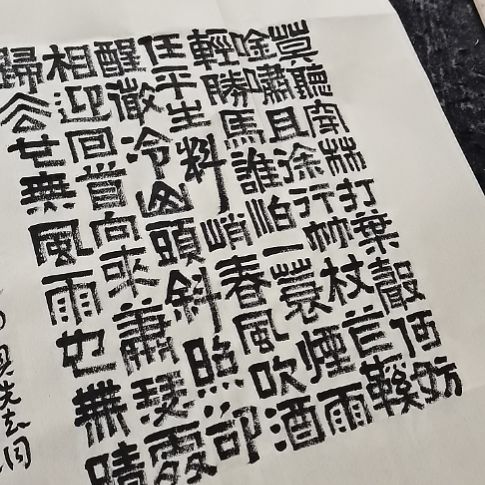 莫聽穿林打葉聲何妨
唫嘯且徐行竹杖芒鞵
輕勝馬誰怕一蓑煙雨
任平生料峭春風吹酒
醒微冷山頭斜照卻
相迎回首向來蕭瑟處
歸厺也無風雨也無晴